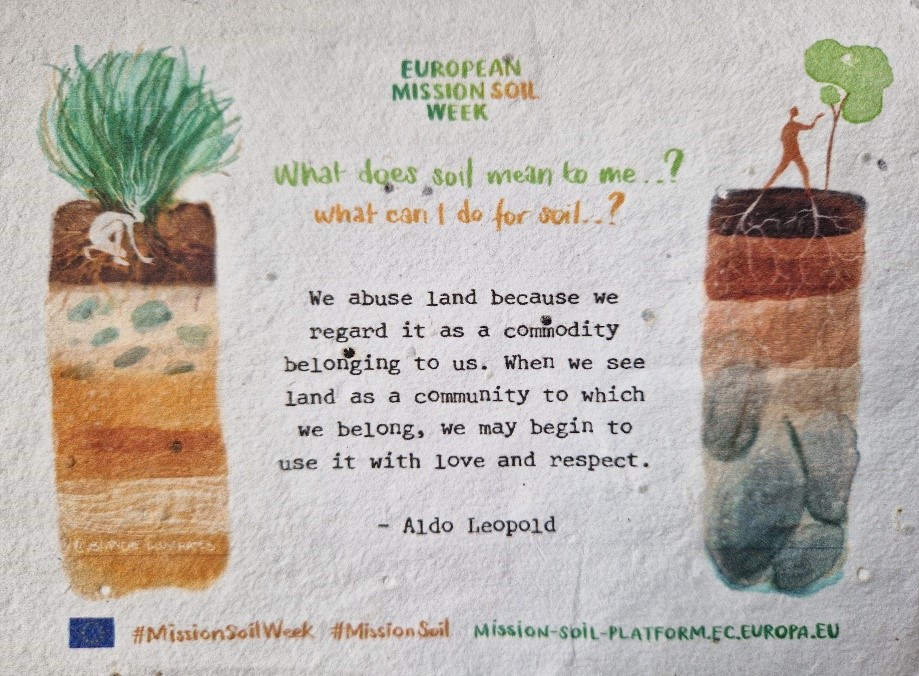 EUROPEAN
MISSION SOIL
WEEK
What does soil mean to me...?
what can I do for soil...?
We abuse land because we
regard it as a commodity
belonging to us. When we see
land as a community to which
we belong, we may begin to
use it with love and respect.
- Aldo Leopold
#MissionSoilWeek #MissionSoil MISSION-SOIL-PLATFORM.EC.EUROPA.EU